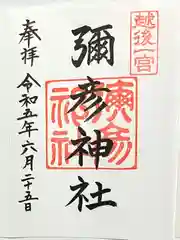 越後一宮
彌彦神社
奉拝
令和五年六月二十五日